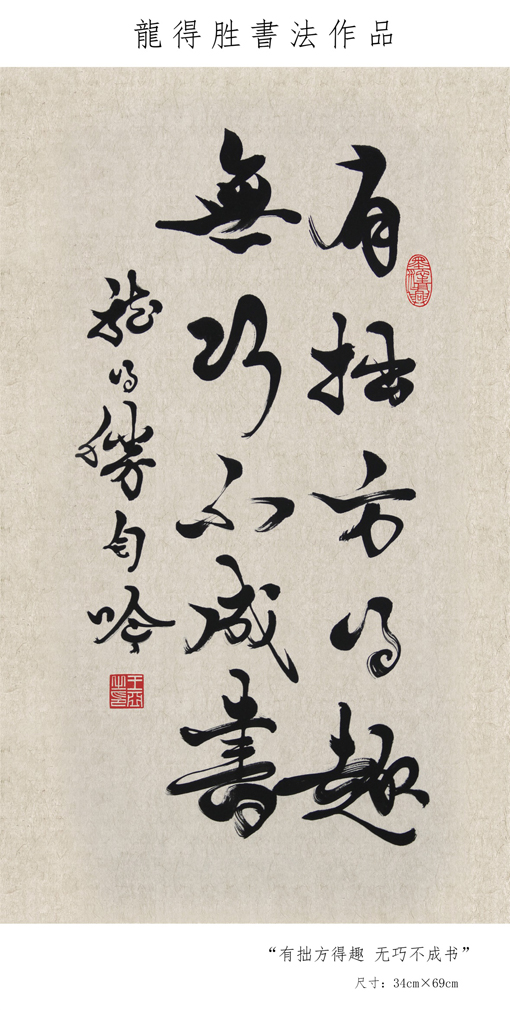 龍得胜書法作品
有拙方得趣
無巧不成書
龙得勝自吟
“有拙方得趣 无巧不成书”
尺寸：34cm×69cm